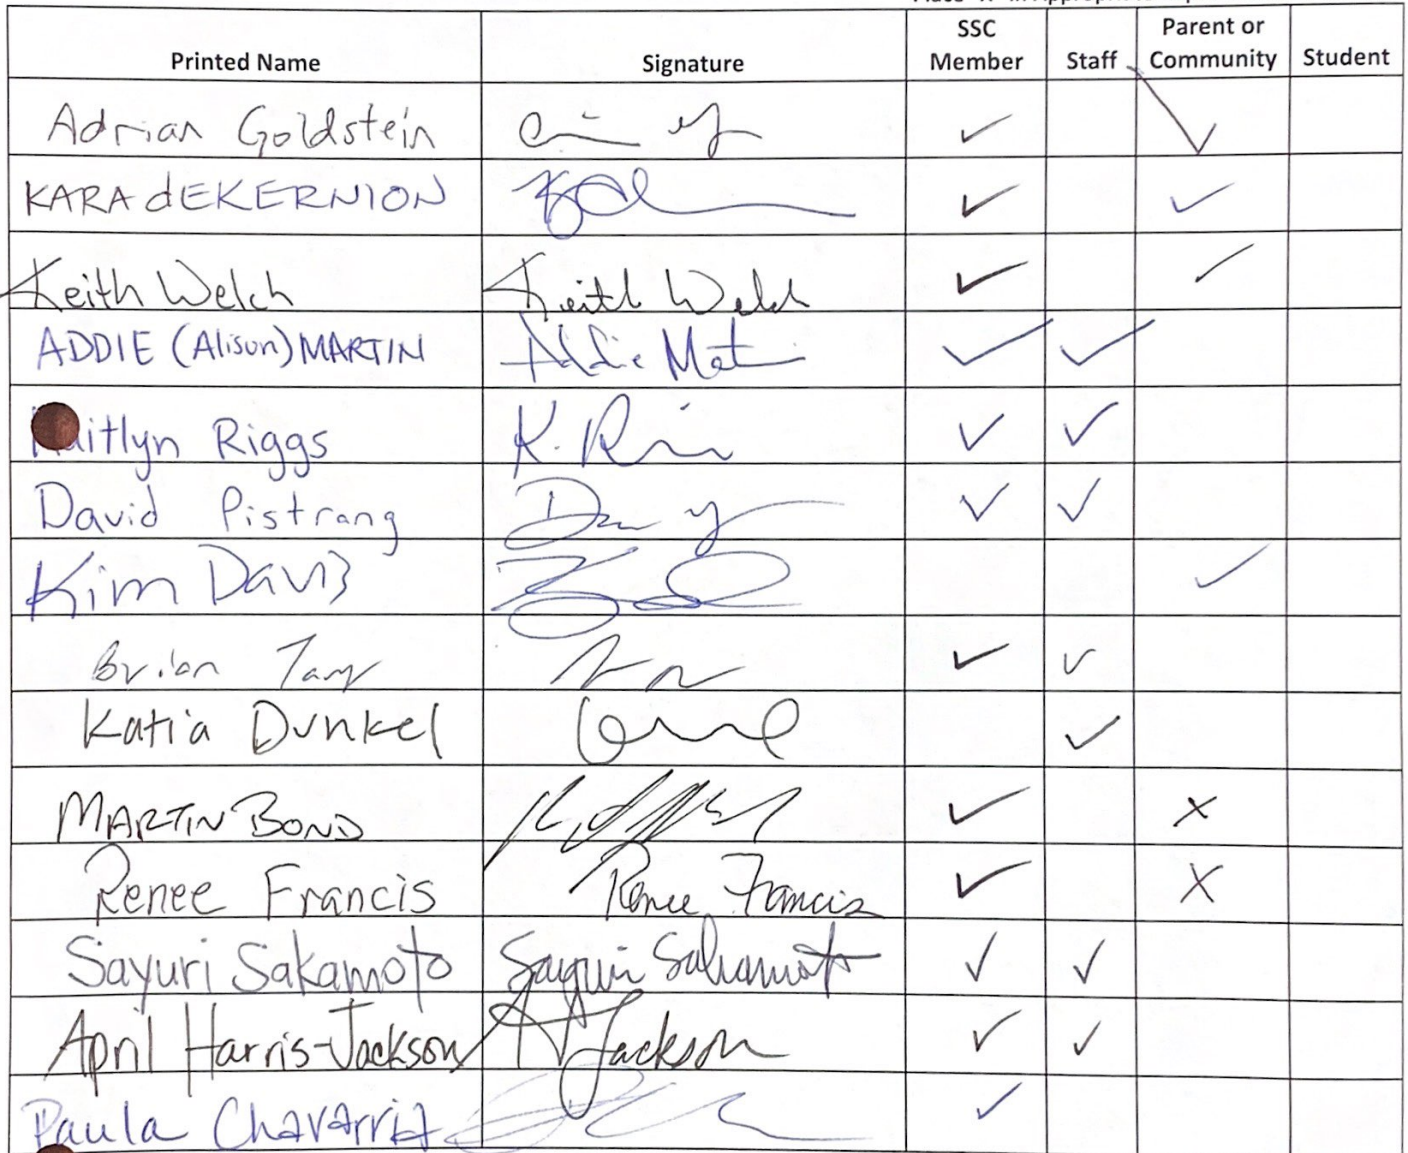 Printed Name Signature SSC Member Staff Parent or Community Student
Adrian Goldstein ✓ ✓
KARA dEKERNION ✓ ✓
Keith Welch Keith Welch ✓ ✓
ADDIE (Alison) MARTIN Addie ✓ ✓
Kaitlyn Riggs K. ✓ ✓
David Pistrang ✓ ✓
Kim Davis ✓
Brian ✓ ✓
Katia Dunkel ✓
MARTIN BOND ✓ X
Renee Francis Renee Francis ✓ X
Sayuri Sakamoto Sayuri Sakamoto ✓ ✓
April Harris-Jackson A Jackson ✓ ✓
Paula Chavarria ✓